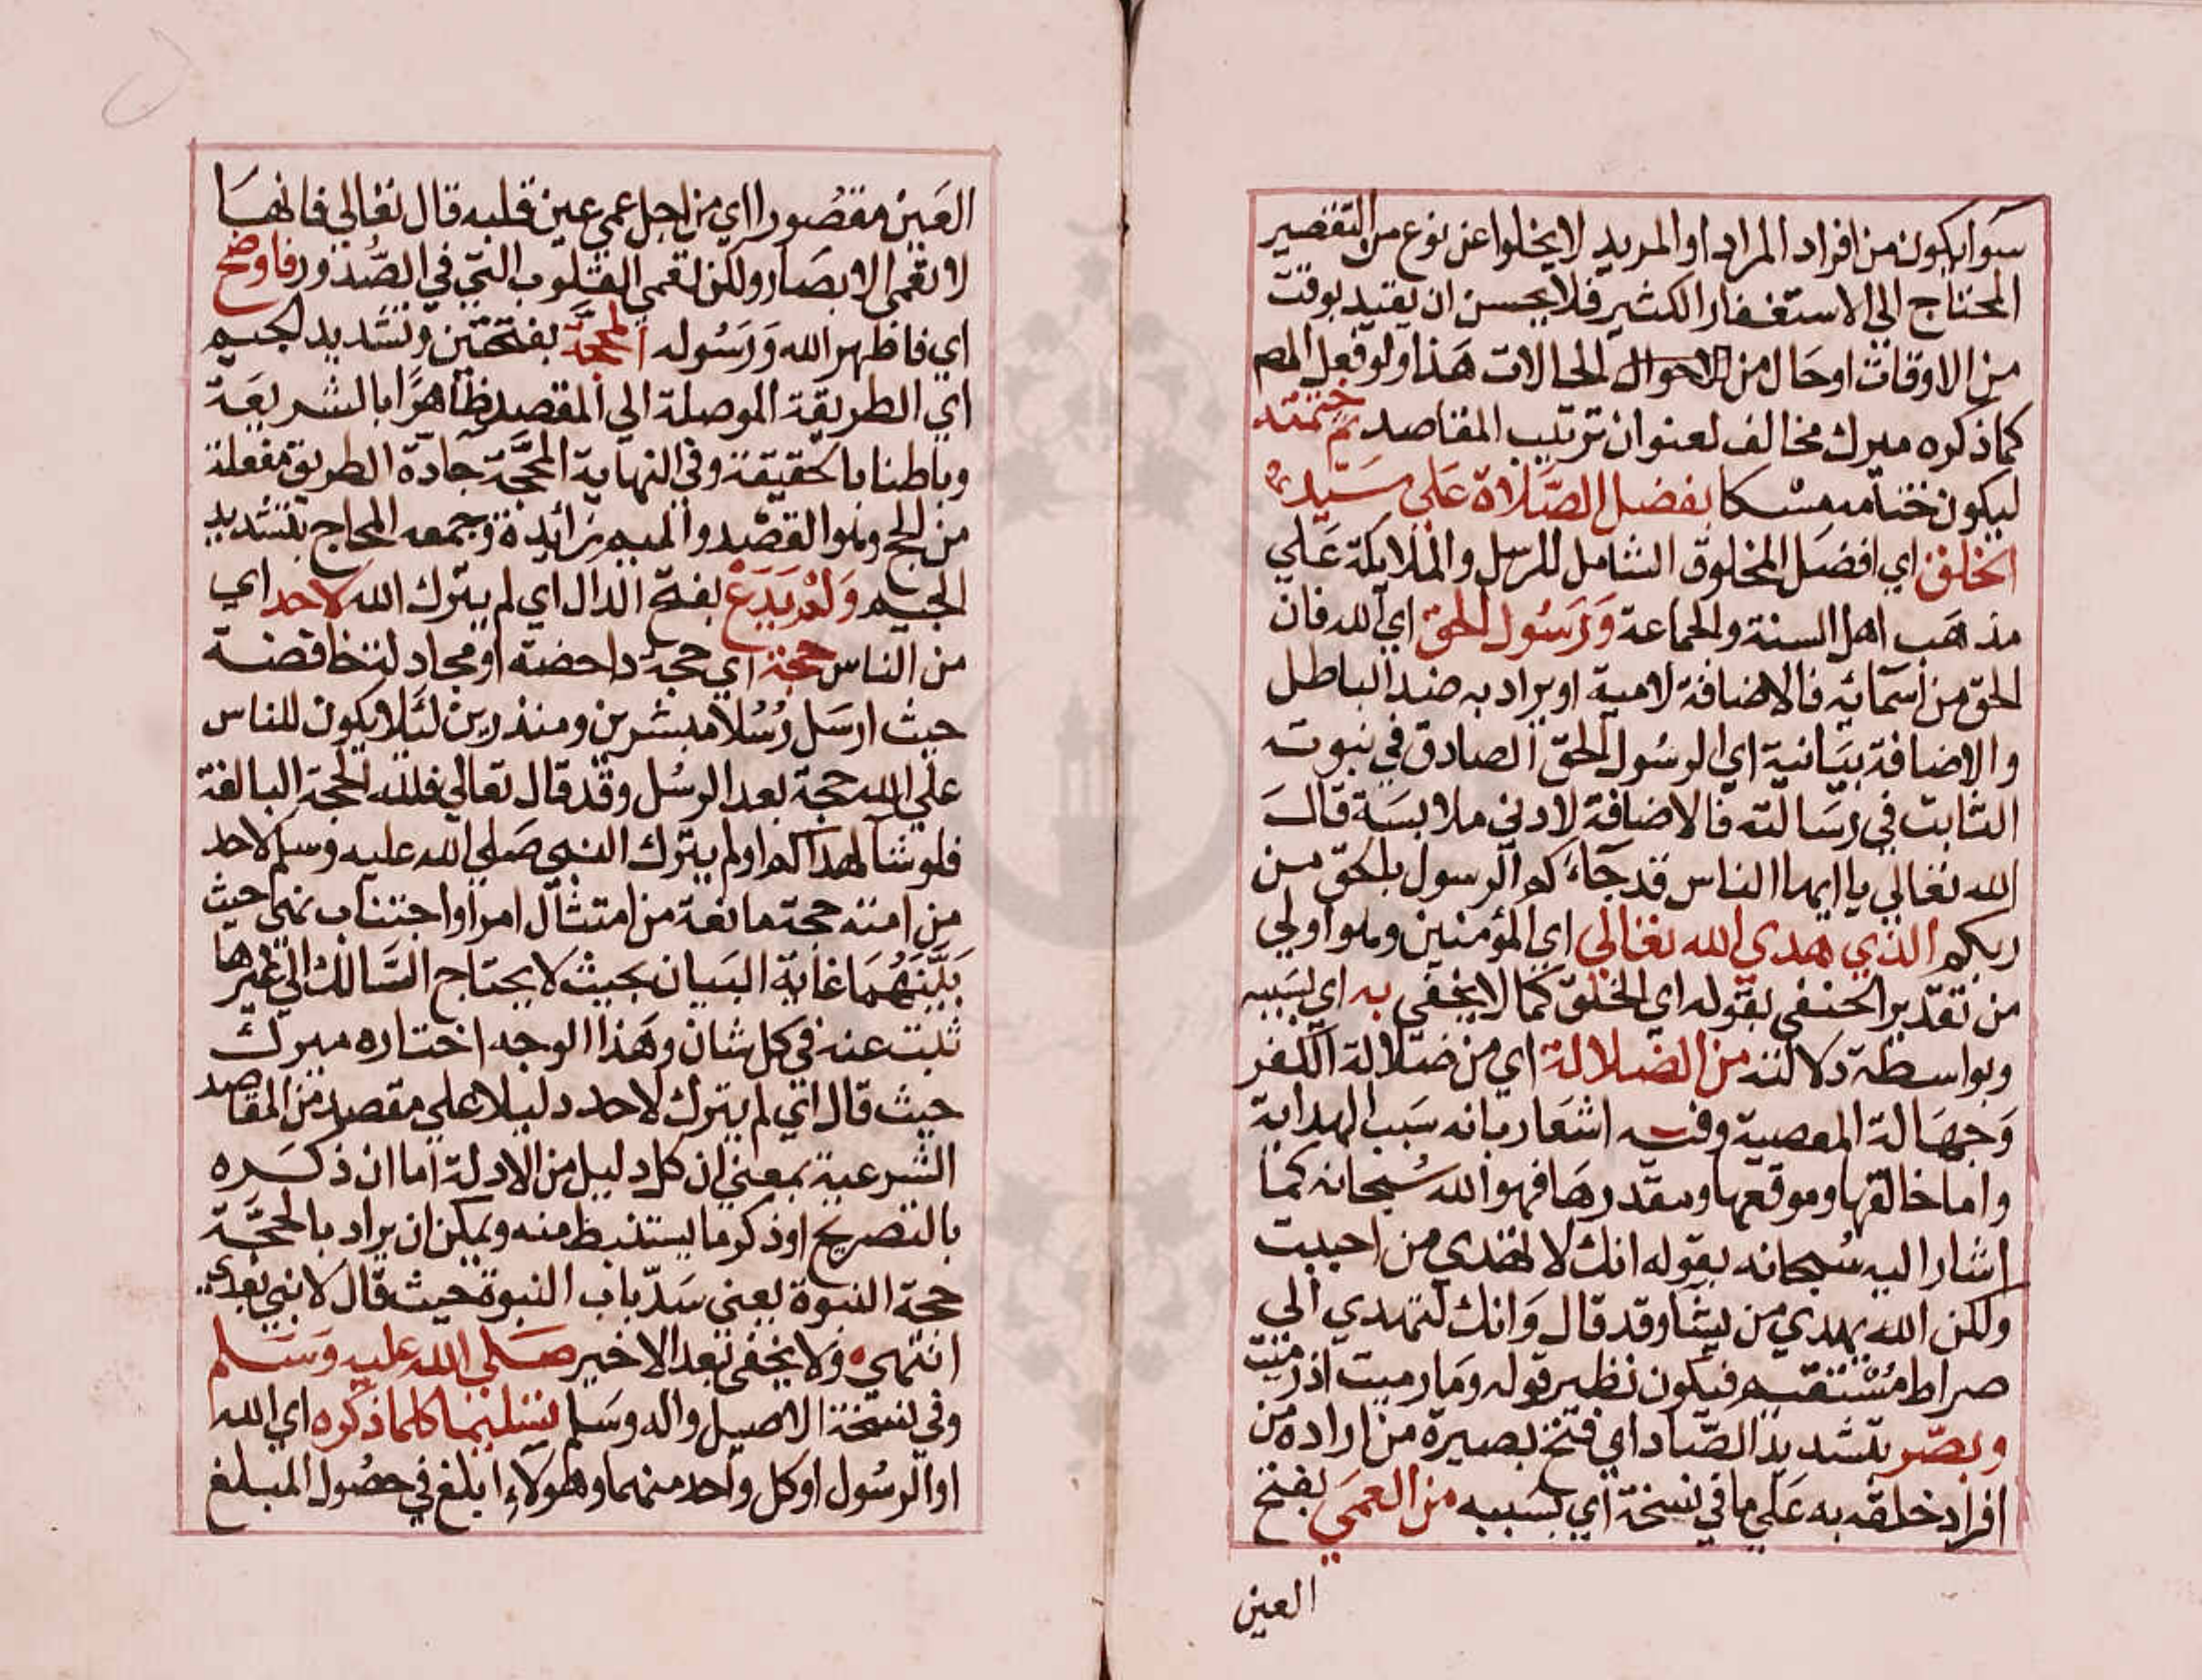 سوا يكون من افراد المراد او المريد لا يخلوا عن نوع من التقصير
المحتاج الي الاستغفار الكثير فلا يحسن ان يقيد بوقت
من الاوقات او حال من الاحوال الحالات هذا ولو فعل المص
كما ذكره ميرك مخالف لعنوان ترتيب المقاصد ثم ختمته
ليكون ختامه مسكا بفضل الصلاة علي سيد
الخلق اي افضل المخلوق الشامل للرسل والملايكة علي
مذهب اهل السنة والجماعة ورسول الحق اي الله فان
الحق من اسمائه فالاضافة لامية او يراد به ضد الباطل
والاضافة بيانية اي الرسول الحق الصادق في نبوته
الثابت في رسالته فالاضافة لادني ملابسة قال
الله تعالي يا ايها الناس قد جآءكم الرسول بالحق من
ربكم الذي هدي الله تعالي اي المؤمنين وهو اولي
من تقدير الحنفي بقوله اي الخلق كما لا يخفي به اي بسببه
وبواسطة دلالته من الضلالة اي من ضلالة الكفر
وجهالة المعصية وفيه اشعار بانه سبب الهداية
واما خالقها وموقعها ومقدرها فهو الله سبحانه كما
اشار اليه سبحانه بقوله انك لا تهدي من احببت
ولكن الله يهدي من يشا وقد قال وانك لتهدي الي
صراط مستقيم فيكون نظير قوله وما رميت اذ رميت
وبصّر بتشديد الصاد اي فتح بصيرة من اراده من
افراد خلقه به علي ما في نسخة اي بسببه من العمي بفتح
العين
العين مقصورا اي من اجل عمي عين قلبه قال تعالي فانها
لا تعمي الابصار ولكن تعمي القلوب التي في الصدور فاوضح
اي فاظهر الله ورسوله المحجة بفتحتين وتشديد الجيم
اي الطريقة الموصلة الي المقصد ظاهرا بالشريعة
وباطنا بالحقيقة وفي النهاية المحجة جادة الطريق مفعلة
من الحج وهو القصد والميم زائدة وجمعه المحاج بتشديد
الجيم ولم يدع بفتح الدال اي لم يترك الله لاحد اي
من الناس حجة اي حجة داحضة او مجادلة خافضة
حيث ارسل رسلا مبشرين ومنذرين لئلا يكون للناس
علي الله حجة بعد الرسل وقد قال تعالي فلله الحجة البالغة
فلو شآ لهداكم او لم يترك النبي صلي الله عليه وسلم لاحد
من امته حجة مانعة من امتثال امر او اجتناب نهي حيث
بينهما غاية البيان بحيث لا يحتاج السالك الي غيرها
ثبت عنه في كل شان وهذا الوجه اختاره ميرك
حيث قال اي لم يترك لاحد دليلا علي مقصد من المقاصد
الشرعية بمعني ان كل دليل من الادلة اما ان ذكره
بالتصريح او ذكر ما يستنبط منه ويمكن ان يراد بالحجة
حجة النبوة يعني سد باب النبوة حيث قال لا نبي بعدي
انتهي ولا يخفي بعد الاخير صلي الله عليه وسلم
وفي نسخة الاصيل واله وسلم تسليما كلما ذكره اي الله
او الرسول او كل واحد منهما وهولاء ابلغ في حصول المبلغ